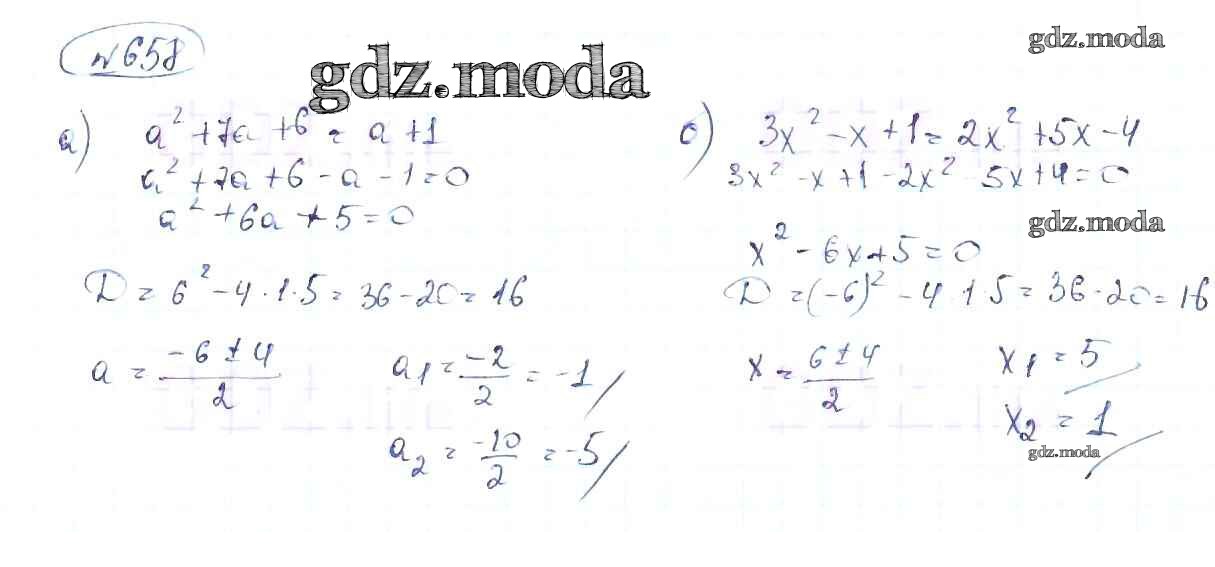 №658
gdz.moda
gdz.moda
а) a² + 7a + 6 = a + 1
a² + 7a + 6 - a - 1 = 0
a² + 6a + 5 = 0
D = 6² - 4 · 1 · 5 = 36 - 20 = 16
a = (-6 ± 4)/2
a₁ = -2/2 = -1
a₂ = -10/2 = -5
б) 3x² - x + 1 = 2x² + 5x - 4
3x² - x + 1 - 2x² - 5x + 4 = 0
gdz.moda
x² - 6x + 5 = 0
D = (-6)² - 4 · 1 · 5 = 36 - 20 = 16
x = (6 ± 4)/2
x₁ = 5
x₂ = 1
gdz.moda